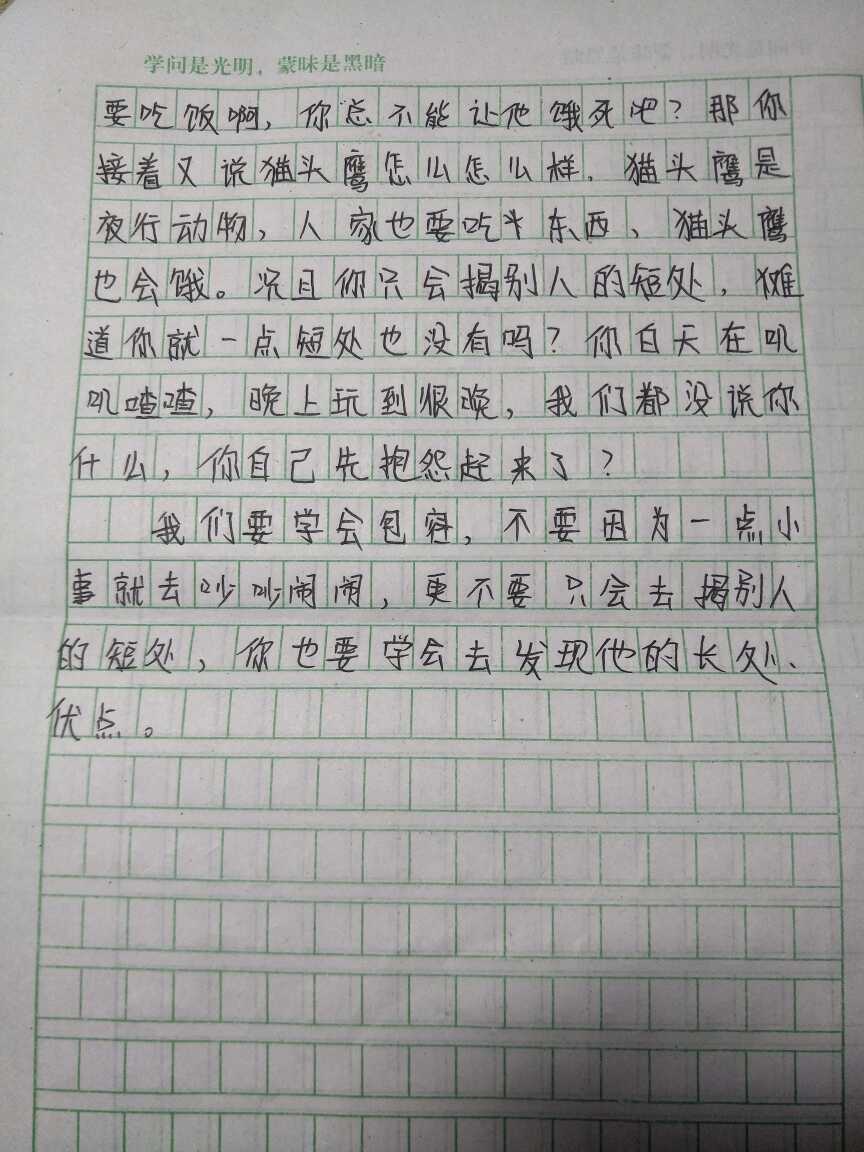 学问是光明，蒙昧是黑暗
要吃饭啊，你总不能让他饿死吧？那你
接着又说猫头鹰怎么怎么样，猫头鹰是
夜行动物，人家也要吃东西、猫头鹰
也会饿。况且你只会揭别人的短处，难
道你就一点短处也没有吗？你白天在叽
叽喳喳，晚上玩到很晚，我们都没说你
什么，你自己先抱怨起来了？
我们要学会包容，不要因为一点小
事就去吵吵闹闹，更不要只会去揭别人
的短处，你也要学会去发现他的长处、
优点。